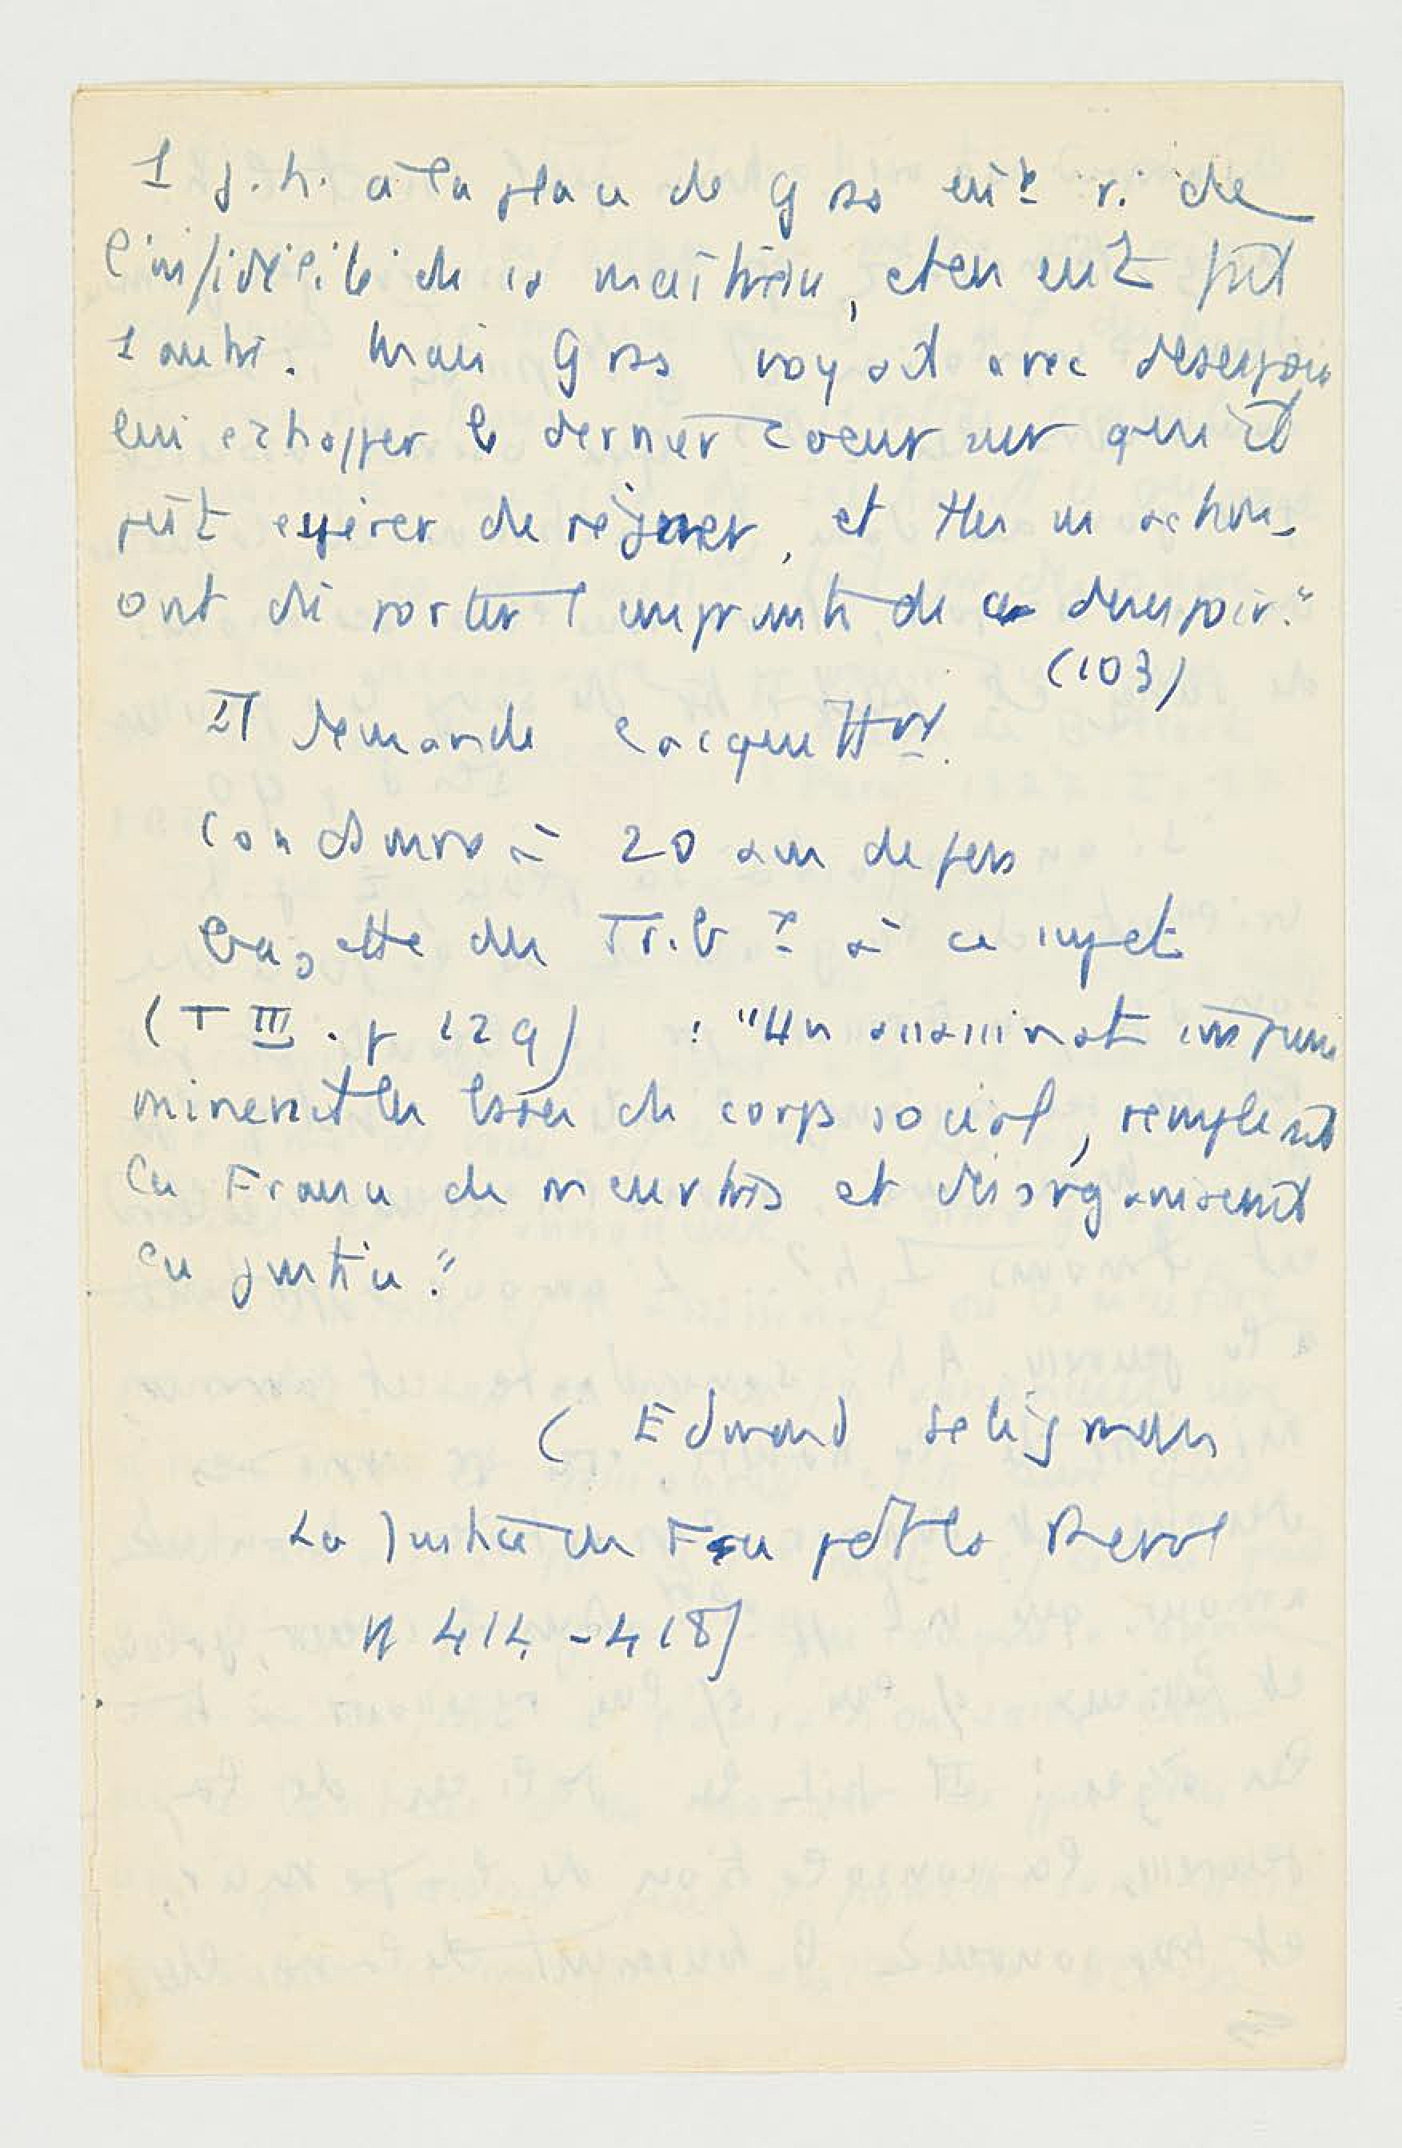 1 j.h. à la place de Gras eût r. de
l'infidélité de sa maîtresse, et en eût fait
1 autre. Mais Gras voyait avec desespoir
lui echapper le dernier coeur sur qui il
pût espérer de régner, et ttes ses actions
ont dû porter l'empreinte de ce desespoir."
(103)
Il demande l'acquittt.
Condamné à 20 ans de fers
Gazette des Trib x à ce sujet
(T III. p 129) : "Un assassinat impuni
minerait les bases du corps social, remplirait
la France de meurtres et désorganiserait
la justice."
( Edmond Seligman
La Justice en Fce pdt la Revol
pp 414-418)